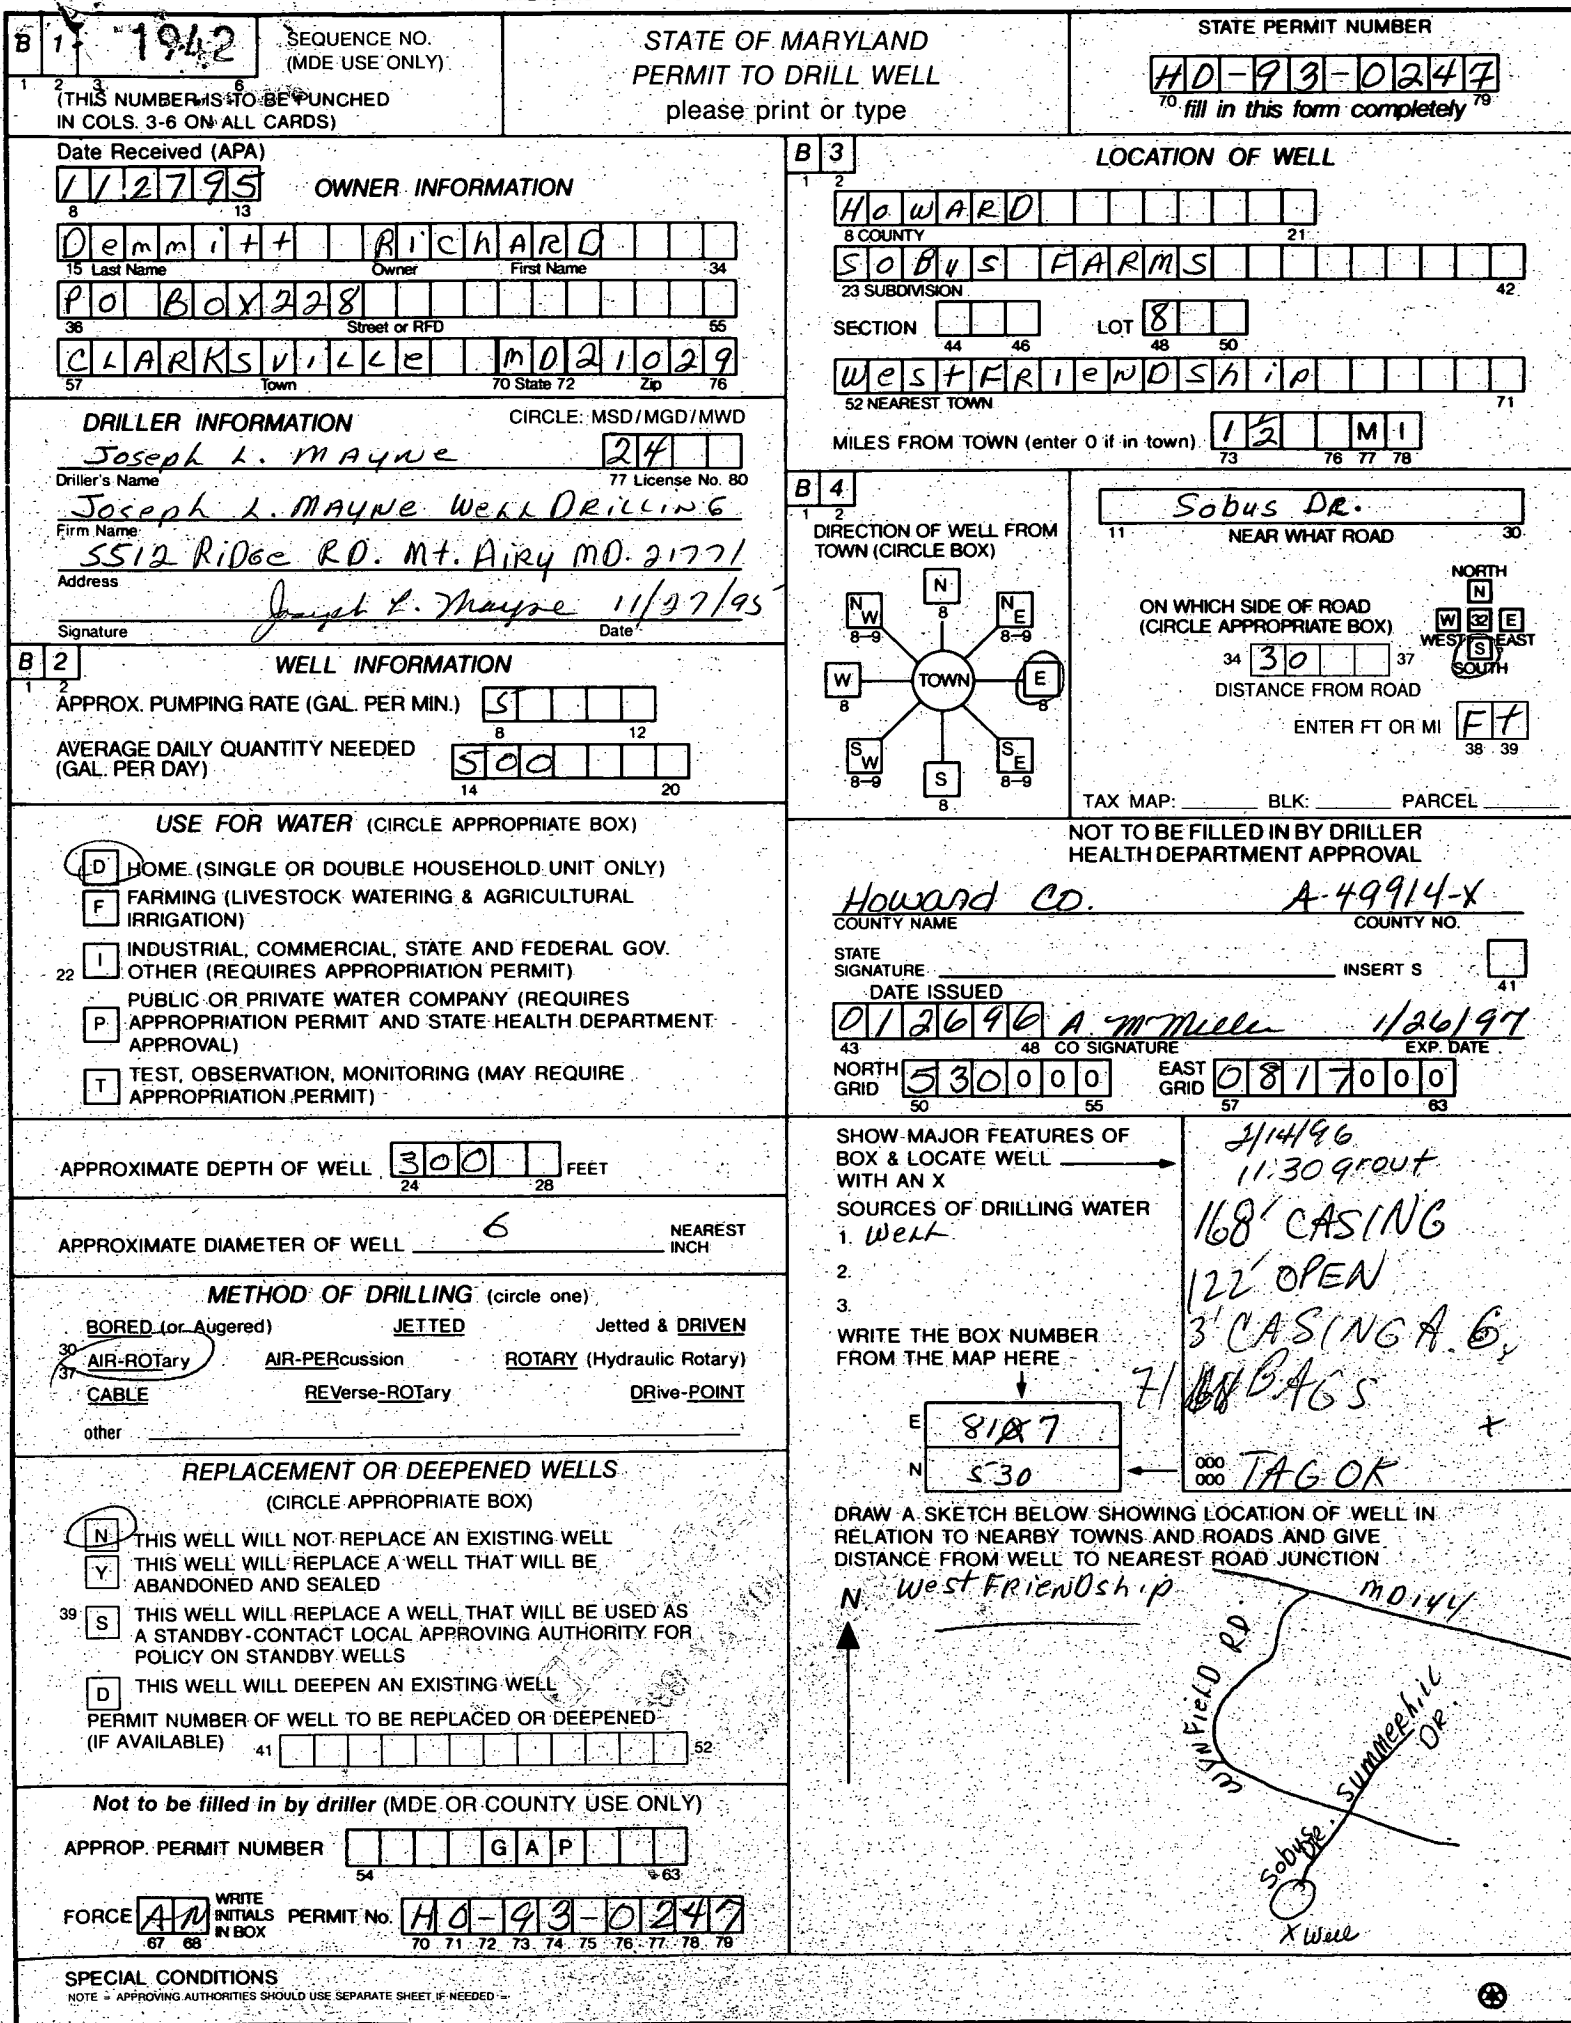 B 1 1942 SEQUENCE NO. (MDE USE ONLY)
1 2 3 6
(THIS NUMBER IS TO BE PUNCHED
IN COLS. 3-6 ON ALL CARDS)
STATE OF MARYLAND
PERMIT TO DRILL WELL
please print or type
STATE PERMIT NUMBER
HO-93-0247
70 fill in this form completely 79
Date Received (APA)
112795 OWNER INFORMATION
8 13
Demmitt RICHARD
15 Last Name Owner First Name 34
PO BOX 228
36 Street or RFD 55
CLARKSVILLE MD 21029
57 Town 70 State 72 Zip 76
DRILLER INFORMATION CIRCLE: MSD/MGD/MWD
Joseph L. MAYNE 24
Driller's Name 77 License No. 80
Joseph L. MAYNE WELL DRILLING
Firm Name
5512 RIDGE RD. Mt. AIRY MD. 21771
Address
Joseph L. Mayne 11/27/95
Signature Date
B 2 WELL INFORMATION
1 2
APPROX. PUMPING RATE (GAL. PER MIN.) 5
8 12
AVERAGE DAILY QUANTITY NEEDED
(GAL. PER DAY) 500
14 20
USE FOR WATER (CIRCLE APPROPRIATE BOX)
D HOME (SINGLE OR DOUBLE HOUSEHOLD UNIT ONLY)
F FARMING (LIVESTOCK WATERING & AGRICULTURAL
IRRIGATION)
22 I INDUSTRIAL, COMMERCIAL, STATE AND FEDERAL GOV.
OTHER (REQUIRES APPROPRIATION PERMIT)
P PUBLIC OR PRIVATE WATER COMPANY (REQUIRES
APPROPRIATION PERMIT AND STATE HEALTH DEPARTMENT
APPROVAL)
T TEST, OBSERVATION, MONITORING (MAY REQUIRE
APPROPRIATION PERMIT)
APPROXIMATE DEPTH OF WELL 300 FEET
24 28
APPROXIMATE DIAMETER OF WELL 6 NEAREST
INCH
METHOD OF DRILLING (circle one)
BORED (or Augered) JETTED Jetted & DRIVEN
30 AIR-ROTary AIR-PERcussion ROTARY (Hydraulic Rotary)
37 CABLE REVerse-ROTary DRive-POINT
other
REPLACEMENT OR DEEPENED WELLS
(CIRCLE APPROPRIATE BOX)
N THIS WELL WILL NOT REPLACE AN EXISTING WELL
Y THIS WELL WILL REPLACE A WELL THAT WILL BE
ABANDONED AND SEALED
39 S THIS WELL WILL REPLACE A WELL THAT WILL BE USED AS
A STANDBY-CONTACT LOCAL APPROVING AUTHORITY FOR
POLICY ON STANDBY WELLS
D THIS WELL WILL DEEPEN AN EXISTING WELL
PERMIT NUMBER OF WELL TO BE REPLACED OR DEEPENED
(IF AVAILABLE) 41 52
Not to be filled in by driller (MDE OR COUNTY USE ONLY)
APPROP. PERMIT NUMBER GAP
54 63
FORCE AM WRITE INITIALS IN BOX PERMIT No. HO-93-0247
67 68 70 71 72 73 74 75 76 77 78 79
SPECIAL CONDITIONS
NOTE = APPROVING AUTHORITIES SHOULD USE SEPARATE SHEET IF NEEDED =
B 3 LOCATION OF WELL
1 2
HOWARD
8 COUNTY 21
SOBUS FARMS
23 SUBDIVISION 42
SECTION LOT 8
44 46 48 50
WEST FRIENDShip
52 NEAREST TOWN 71
MILES FROM TOWN (enter 0 if in town) 1 1/2 MI
73 76 77 78
B 4
1 2
DIRECTION OF WELL FROM
TOWN (CIRCLE BOX)
N 8
NW 8-9 NE 8-9
W 8 TOWN E 8
SW 8-9 SE 8-9
S 8
Sobus DR.
11 NEAR WHAT ROAD 30
ON WHICH SIDE OF ROAD
(CIRCLE APPROPRIATE BOX)
NORTH
N
W 32 E
WEST EAST
S
SOUTH
34 30 37
DISTANCE FROM ROAD
ENTER FT OR MI Ft
38 39
TAX MAP: BLK: PARCEL
NOT TO BE FILLED IN BY DRILLER
HEALTH DEPARTMENT APPROVAL
Howard CO. A-49914-X
COUNTY NAME COUNTY NO.
STATE
SIGNATURE INSERT S
41
DATE ISSUED
012696 A. McMiller 1/26/97
43 48 CO SIGNATURE EXP. DATE
NORTH GRID 530000 EAST GRID 0817000
50 55 57 63
SHOW MAJOR FEATURES OF
BOX & LOCATE WELL
WITH AN X
SOURCES OF DRILLING WATER
1. Well
2.
3.
WRITE THE BOX NUMBER
FROM THE MAP HERE
E 817
N 530
2/14/96
11:30 grout
168' CASING
122' OPEN
3' CASING A.G.
71 BAGS
+
000
000 TAG OK
DRAW A SKETCH BELOW SHOWING LOCATION OF WELL IN
RELATION TO NEARBY TOWNS AND ROADS AND GIVE
DISTANCE FROM WELL TO NEAREST ROAD JUNCTION
N West FRIENDship
MD 144
WYNFIELD RD.
SUMMERhill DR.
Sobus DR.
X Well